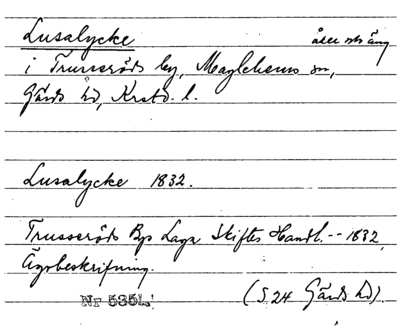 Lusalycke åker och äng
i Trusseröds by, Maglehems sn,
Gärds hd, Krstd. l.
Lusalycke 1832.
Trusseröds Bys Laga Skiftes Handl. -- 1832,
Ägobeskrifning.
Nr 5351. (S. 24 Gärds hd).